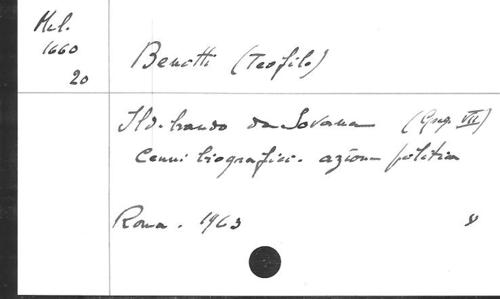 Mel.
1660
20
Benotti (Teofilo)
Ildebrando da Sovana (Greg. VII)
Cenni biografici. azione politica
Roma. 1963